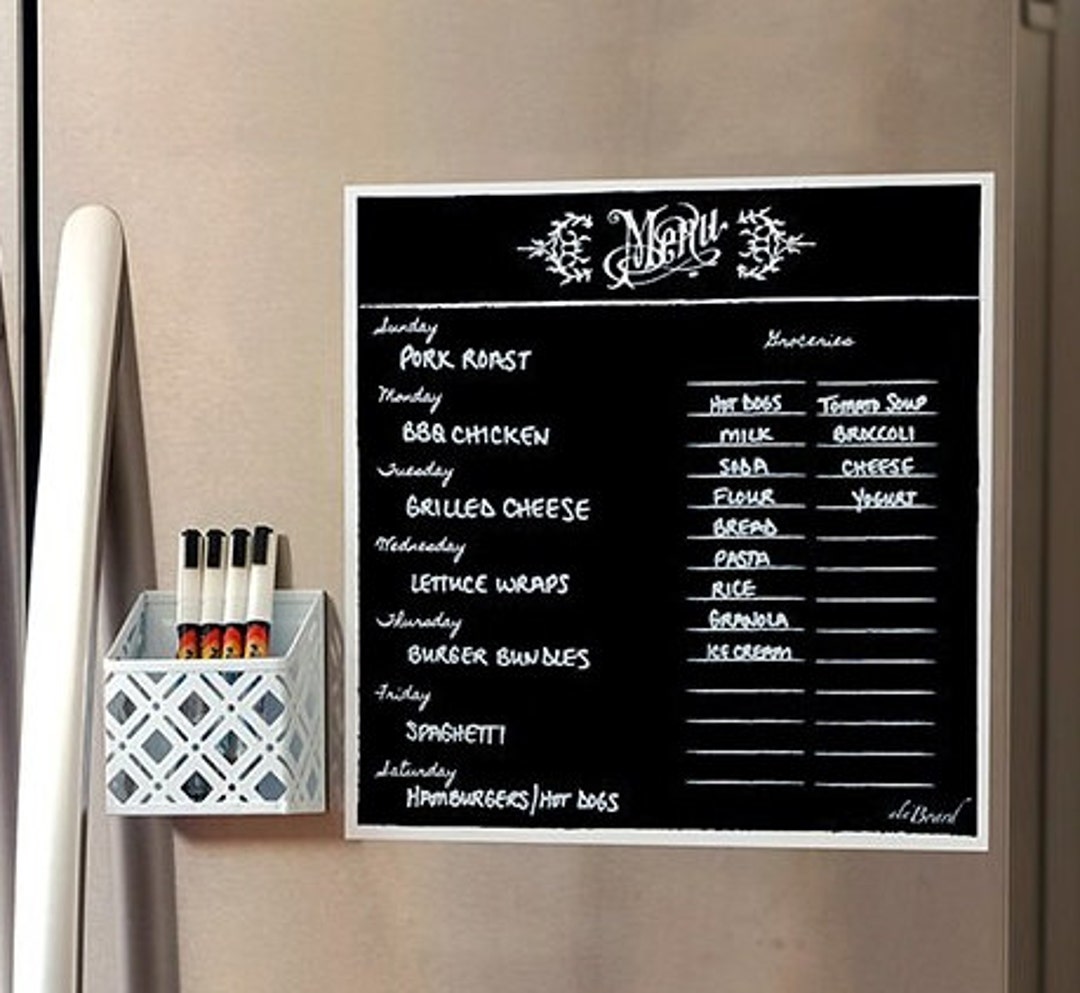 Menu
Sunday
PORK ROAST
Monday
BBQ CHICKEN
Tuesday
GRILLED CHEESE
Wednesday
LETTUCE WRAPS
Thursday
BURGER BUNDLES
Friday
SPAGHETTI
Saturday
HAMBURGERS/HOT DOGS
Groceries
HOT DOGS
MILK
SODA
FLOUR
BREAD
PASTA
RICE
GRANOLA
ICE CREAM
TOMATO SOUP
BROCCOLI
CHEESE
YOGURT